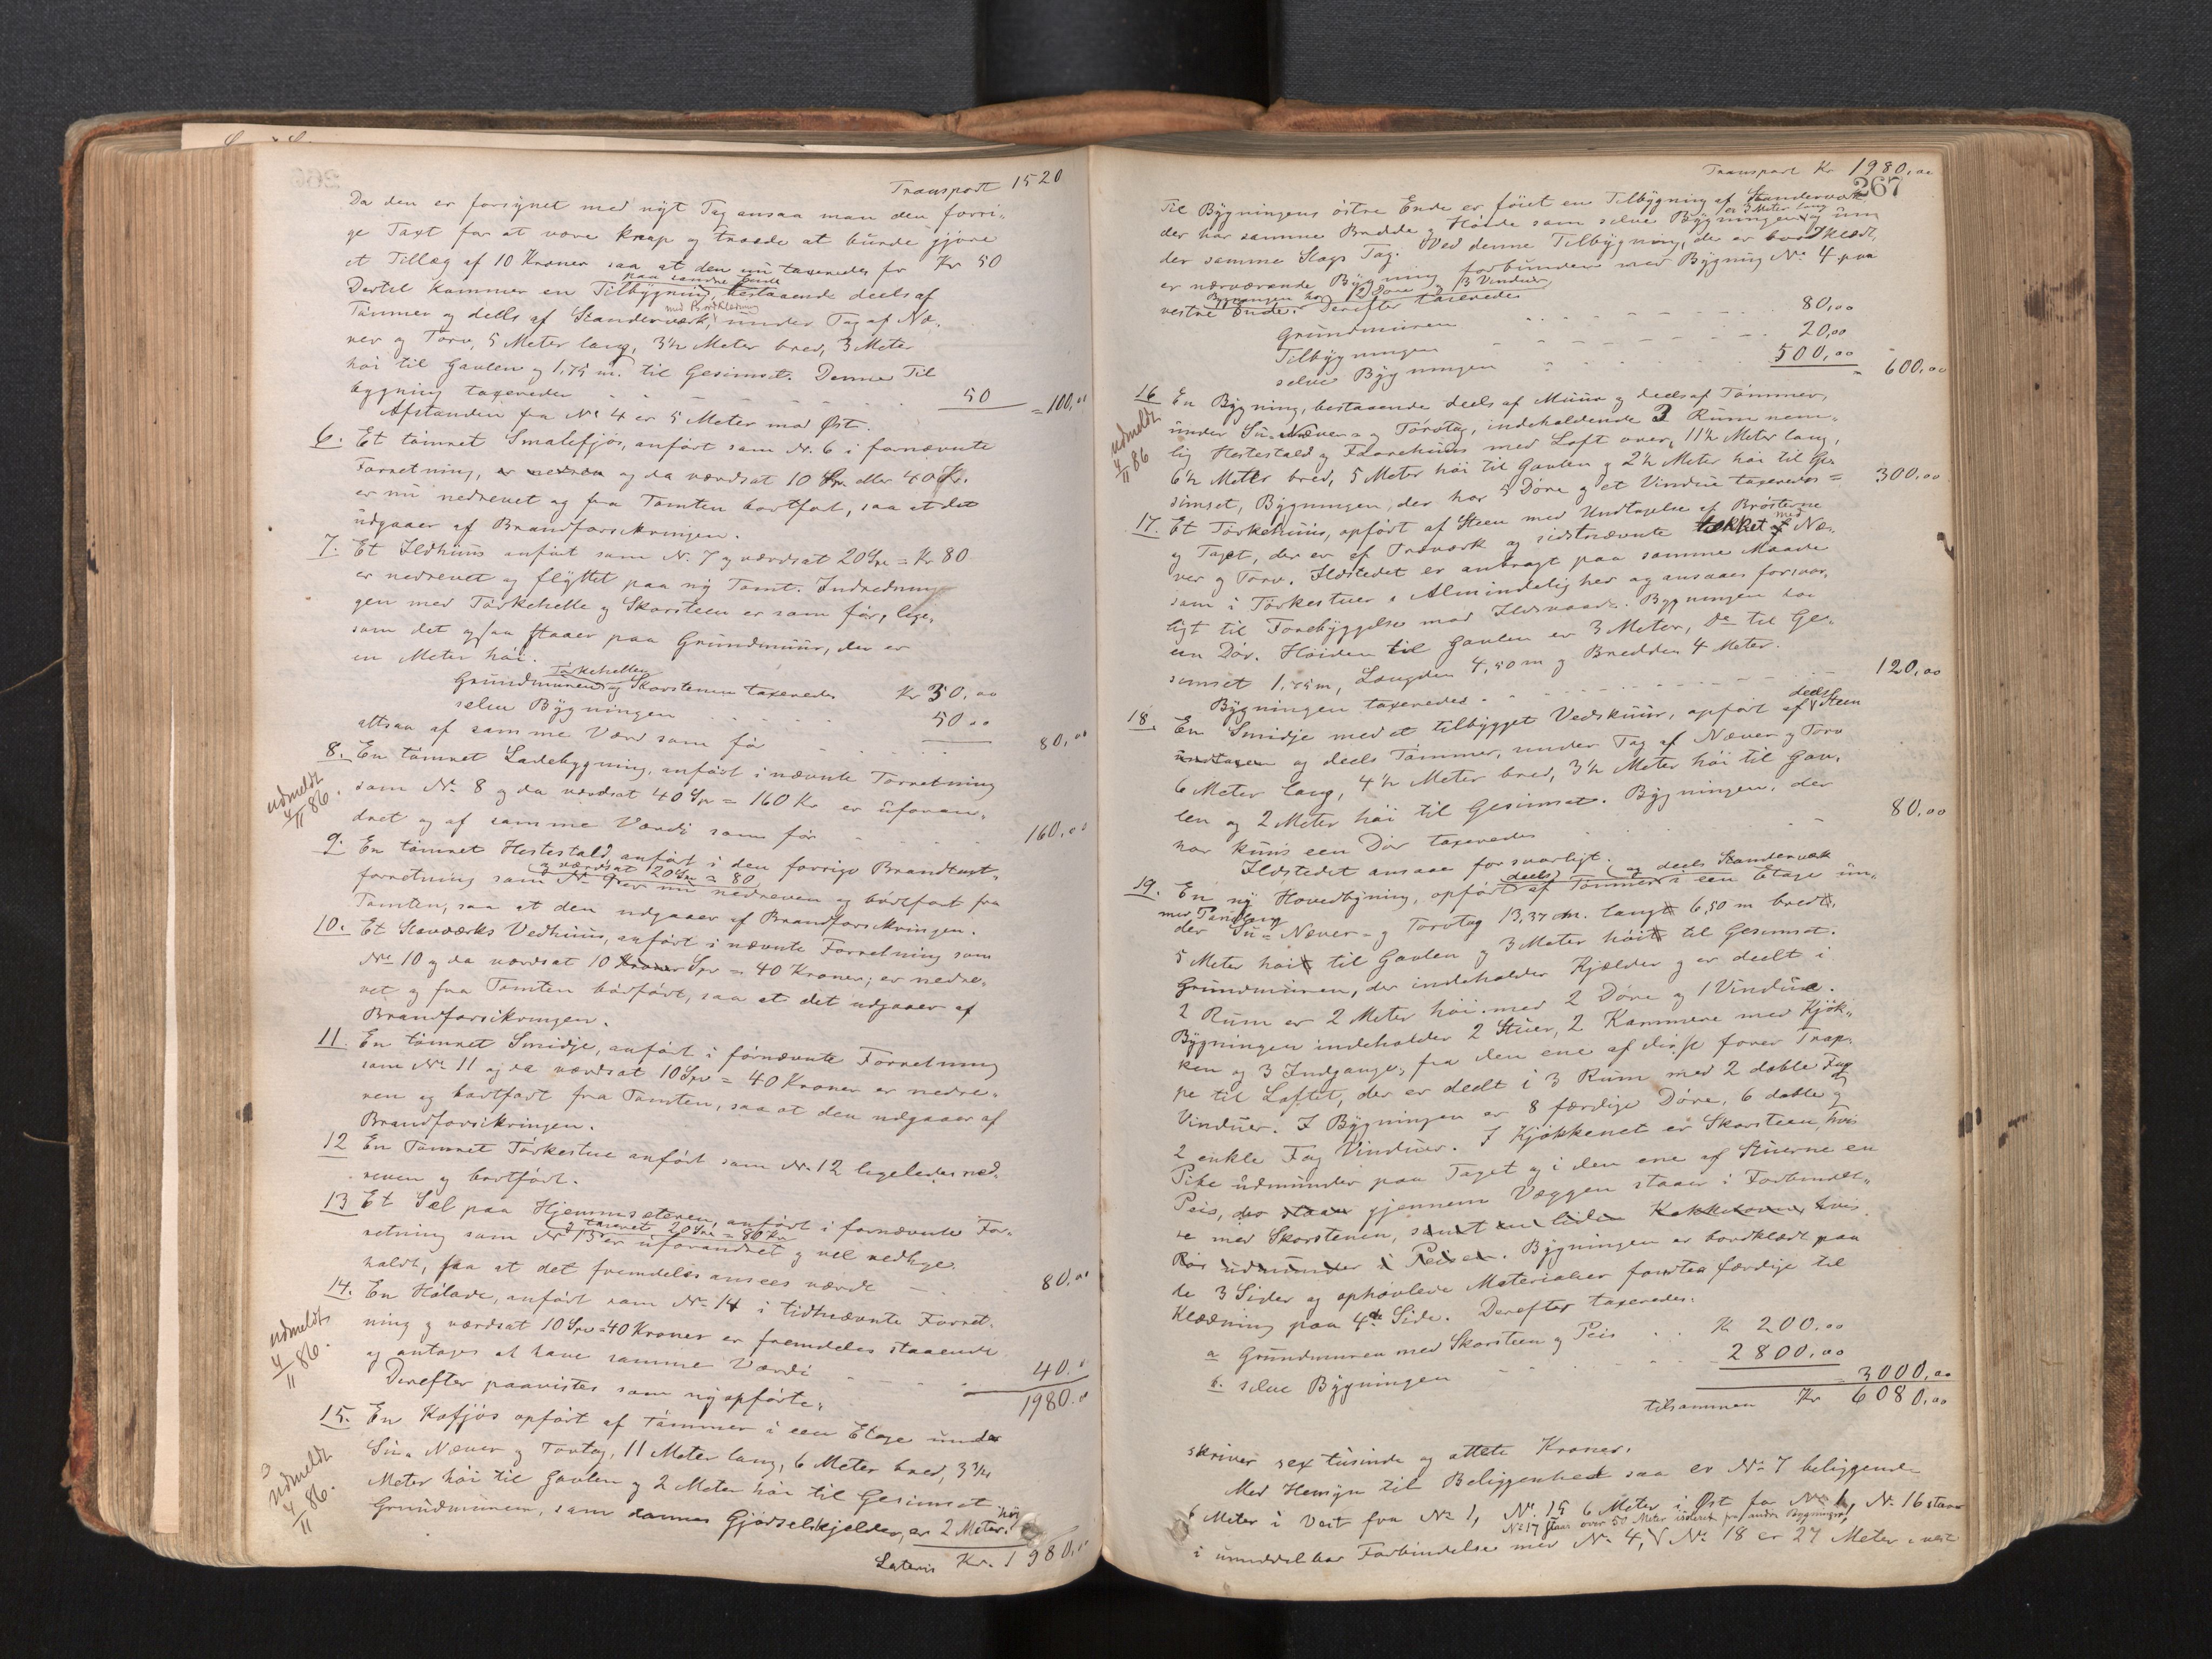 Transport 1520
Da den er forsynet med nyt Tag ansaa man den forri-
ge Taxt for at være knap og troede at burde gjøre
et Tillæg af 10 Kroner saa at den nu taxeredes for Kr 50
paa søndre Ende
Dertil kommer en Tilbygning, bestaaende deels af
med Bordklædning
Tømmer og deels af Standerværk, under Tag af Næ-
ver og Torv, 5 Meter lang, 3½ Meter bred, 3 Meter
høi til Gavlen og 1,75 m. til Gesimset. Denne Til
bygning taxeredes 50 = 100,00
Afstanden fra No 4 er 5 Meter mod Øst.
6. Et tømret Smalefjøs, anført som N. 6 i fornævnte
Forretning, er nedreven og da værdsat 10 Spr. eller 40 Kr.
er nu nedrevet og fra Tomten bortført, saa at det
udgaaer af Brandforsikringen.
7. Et Ildhuus anført som N. 7 og værdsat 20 Spr = Kr 80
er nedrevet og flyttet paa ny Tomt. Indrednin-
gen med Tørkehelle og Skorsteen er som før, lige-
som det ogsaa staaer paa Grundmuur, der er
en Meter høi.
Tørkehellen
Grundmuren og Skorstenen taxeredes Kr 30,00
selve Bygningen 50,00
altsaa af samme Værd som før 80,00
8. En tømret Ladebygning, anført i nævnte Forretning
udmeldt 4/11 86.
som No 8 og da værdsat 40 Spr = 160 Kr er uforan-
dret og af samme Værdi som før 160,00
9. En tømret Hestestald, anført i den forrige Brandtaxt-
og værdsat 20 Spr = 80
forretning som No 9 er nu nedreven og bortført fra
Tomten, saa at den udgaaer af Brandforsikringen.
10. Et Stavværks Vedhuus, anført i nævnte Forretning som
No 10 og da værdsat 10 Kroner Spr = 40 Kroner; er nedre-
vet og fra Tomten bortført, saa at det udgaaer af
Brandforsikringen.
11. En tømret Smidje, anført i førnævnte Forretning
som No 11 og da værdsat 10 Spr = 40 Kroner er nedre-
ven og bortført fra Tomten, saa at den udgaaer af
Brandforsikringen.
12 En Tømret Tørkestue anført som No 12 ligeledes ned-
reven og bortført.
13 Et Sel paa Hjemmsæteren, anført i fornævnte For-
og taxeret 20 Spr = 80 Kr
retning som No 13 er uforandret og vel vedlige-
holdt, saa at det fremdeles ansees værdt 80,00
14. En Høladе, anført som No 14 i tidtnævnte Forret-
udmeldt 4/11 86.
ning og værdsat 10 Spr = 40 Kroner er fremdeles staaende
og antages at have samme Værdi 40.
1980.
Derefter paavistes som ny opførte:
15. En Kofjøs opført af tømmer i een Etage under
udmeldt 4/11 86.
Su- Næver og Torvtag, 11 Meter lang, 6 Meter bred, 3¾
Meter høi til Gavlen og 2 Meter høi til Gesimset
Grundmuren, som dannes Gjødselskjelder, er 2 Meter høi
Lateris Kr. 1980,00
Transport Kr 1980,00
267
Til Bygningens østre Ende er føiet en Tilbygning af Standerværk
er 3 Meter lang
der har samme Bredde og Høide som selve Bygningen og un
der samme Slags Tag. Ved denne Tilbygning, der er bordklædt,
er nærværende Bygning forbunden med Bygning No 4 paa
Bygningen har 2 Døre og 3 Vinduer
vestre Ende. Derefter taxeredes
Grundmuren 80,00
Tilbygningen 20,00
selve Bygningen 500,00 = 600,00
16 En Bygning, bestaaende deels af Muur og deels af Tømmer,
udmeldt 4/11 86
under Su- Næver- og Torvtag, indeholdende 3 Rum nem-
lig Hestestald og Faarehuus med Loft over, 11½ Meter lang,
6½ Meter bred, 5 Meter høi til Gavlen og 2½ Meter høi til Ge-
simset, Bygningen, der har 5 Døre og et Vindue taxeredes = 300,00
17. Et Tørkehuus, opført af Steen med Undtagelse af Brøsterne
og Taget, der er af Træværk og sidstnævnte tækket med Næ-
ver og Torv. Ildstedet er anbragt paa samme Maade
som i Tørkestuer i Almindelighed og ansaaes forsvar-
ligt til Forebyggelse mod Ildsvaade. Bygningen har
een Dør. Høiden til Gavlen er 3 Meter, Do til Ge-
simset 1,75 m, Længden 4,50 m og Bredden 4 Meter.
Bygningen taxeredes 120,00
18. En Smidje med et tilbygget Vedskuur, opført af deels Steen
undtagen og deels Tømmer, under Tag af Næver og Torv
6 Meter lang, 4½ Meter bred, 3½ Meter høi til Gav-
len og 2 Meter høi til Gesimset. Bygningen, der
har kuns een Dør taxeredes 80,00
Ildstedet ansaaes forsvarligt.
deels og deels Standerværk
19. En ny Hovedbyning, opført af Tømmer i een Etage un-
der Su- Næver- og Torvtag 13,37 m. langt 6,50 m bredt,
5 Meter høit til Gavlen og 3 Meter høit til Gesimset.
Grundmuren, der indeholder Kjælder og er deelt i
2 Rum er 2 Meter høi med 2 Døre og 1 Vindue.
Bygningen indeholder 2 Stuer, 2 Kammere med Kjøk-
ken og 3 Indgange, fra den ene af disse fører Trap-
pe til Loftet, der er deelt i 3 Rum med 2 doble Fag
Vinduer. I Bygningen er 8 færdige Døre, 6 doble og
2 enkle Fag Vinduer. I Kjøkkenet er Skorsteen, hvis
Pibe udmunder paa Taget og i den ene af Stuerne en
Peis, der staaer gjennem Væggen staaer i Forbindel-
se med Skorstenen, samt en liden Kakkelovn, hvis
Rør udmunder i Peisen. Bygningen er bordklædt paa
de 3 Sider og ophøvlede Materialier fandtes færdige til
Klædning paa 4de Side. Derefter taxeredes:
a Grundmuren med Skorsteen og Peis Kr 200,00
b. selve Bygningen 2800,00 = 3000,00
tilsammen Kr 6080,00
skriver sex tusinde og ottete Kroner.
Med Hensyn til Beliggenhed saa er No 7 beliggende
6 Meter i Vest fra No 1, No. 15 6 Meter i Øst for No 1, No. 16 staar
No 17 staar over 50 Meter isoleret fra andre Bygninger
i umiddelbar Forbindelse med No 4, No 18 er 27 Meter i vest